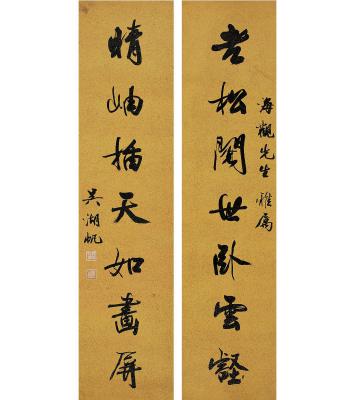 海觀先生雅屬
老松閱世臥雲壑
晴岫插天如畫屏
吳湖帆